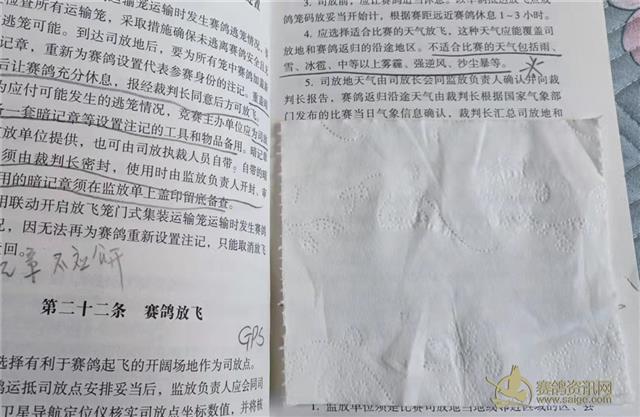 检查所有运输笼，采取措施确保未逃离赛鸽安全且无
逃笼可能。到达司放地后，要为所有笼中赛鸽加盖新
记章，重新为赛鸽设置代表参赛身份的注记。
后让赛鸽充分休息，报经裁判长同意后方可放飞。
为应付可能发生的逃笼情况，竞赛主办单位应为司放
一套暗记章等设置注记的工具和物品备用。暗记
放单位提供，也可由司放执裁人员自带。自带的暗
须由裁判长密封，使用时由监放负责人开封，
用的暗记章须在监放单上盖印留底备查。
用联动开启放飞笼门式集装运输笼运输时发生赛鸽
况，因无法再为赛鸽重新设置注记，只能取消放飞
返回。
第二十二条 赛鸽放飞
GPS
选择有利于赛鸽起飞的开阔场地作为司放点。
鸽运抵司放点安排妥当后，监放负责人应会同司
卫星导航定位仪核实司放点坐标数值，并将核
鸽笼码放妥当开始计，根据赛距远近赛鸽休息1~3小时。
4. 应选择适合比赛的天气放飞，这种天气应能覆盖司
放地和赛鸽返归的沿途地区。不适合比赛的天气包括雨、
雪、冰雹、中等以上雾霾、强逆风、沙尘暴等。
5. 司放地天气由司放长会同监放负责人确认并向裁
判长报告，赛鸽返归沿途天气由裁判长根据国家气象部
门发布的比赛当日气象信息确认，裁判长汇总司放地和
赛鸽资讯网
www.saige.com